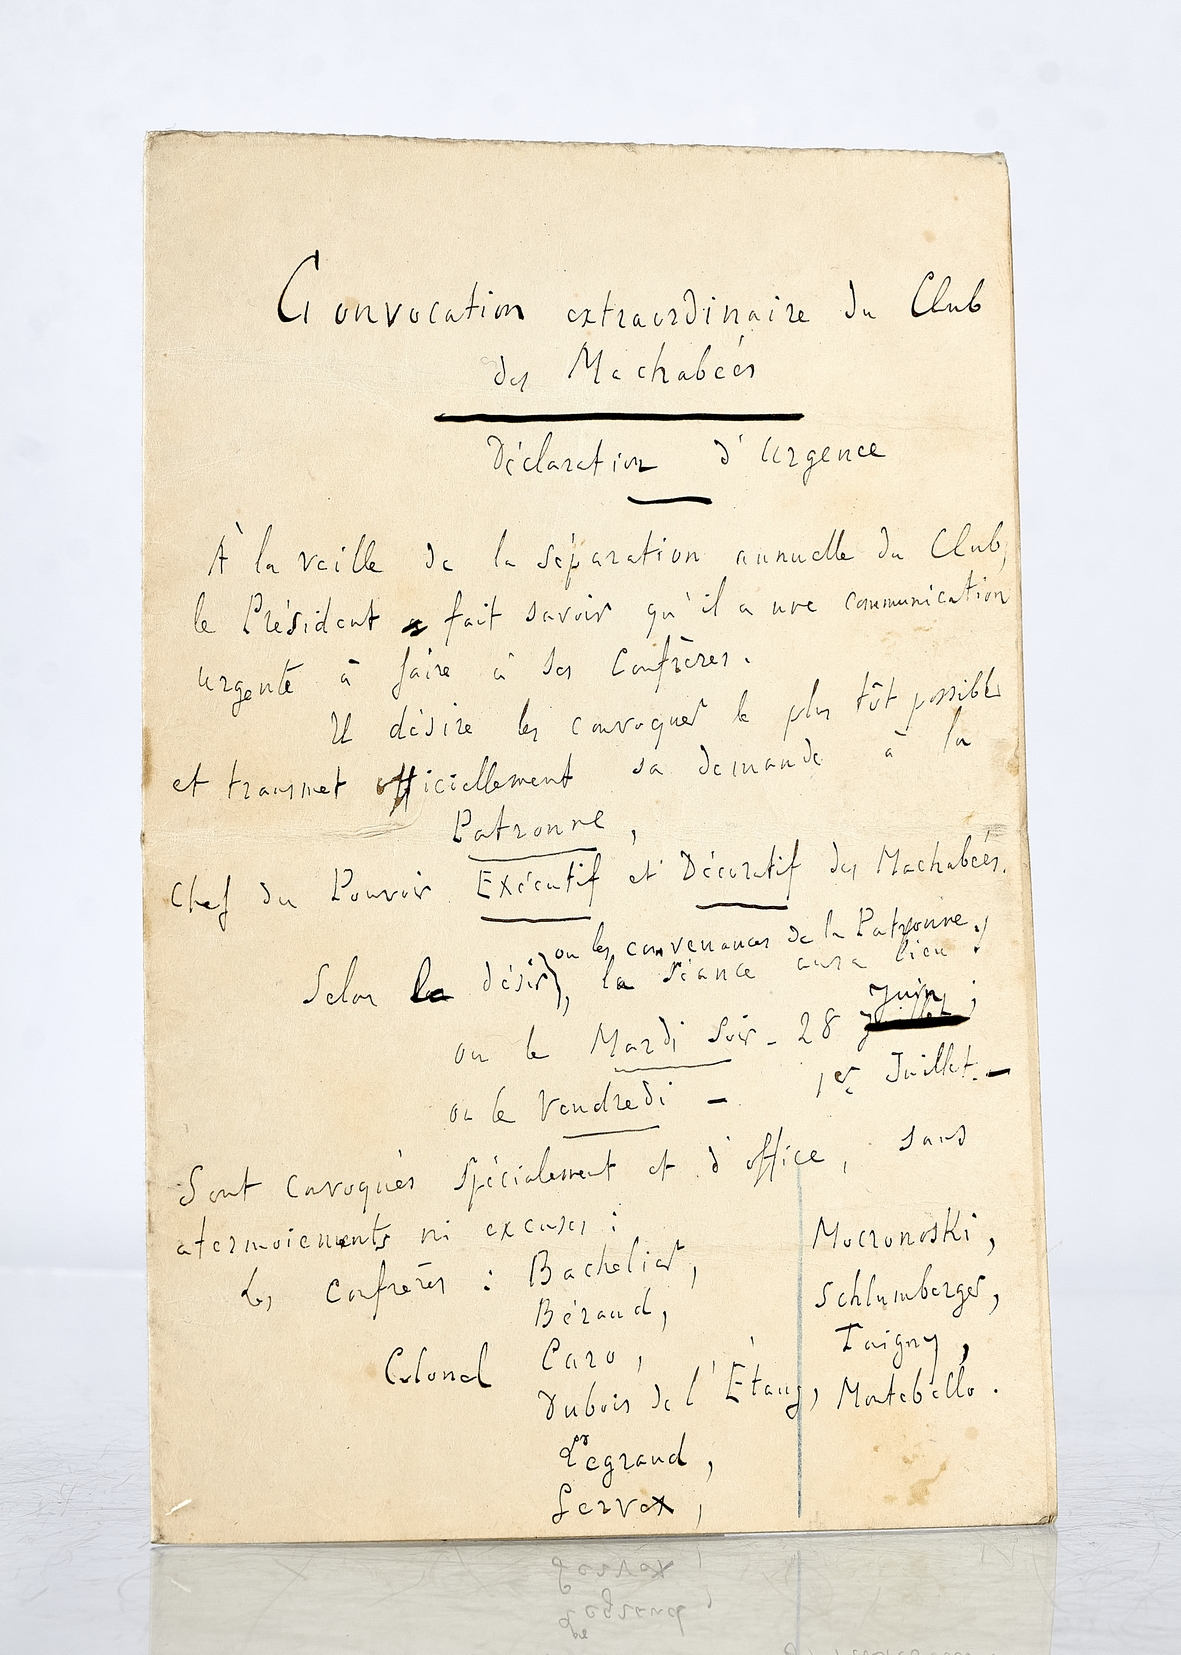 Convocation extraordinaire du Club
des Machabées
Déclaration d'Urgence
À la veille de la séparation annuelle du Club,
le Président fait savoir qu'il a une communication
urgente à faire à ses Confrères.
Il désire les convoquer le plus tôt possible
et transmet officiellement sa demande à la
Patronne,
Chef du Pouvoir Exécutif et Décoratif des Machabées.
ou les convenances de la Patronne,
Selon le désir, la séance aura lieu :
ou le Mardi Soir - 28 Juin ;
ou le Vendredi - 1er Juillet. -
Sont convoqués spécialement et d'office, sans
atermoiements ni excuses :
Les Confrères : Bachelier,
Béraud,
Colonel Caro,
Dubois de l'Étang,
Legrand,
Gervex,
Mocronoski,
Schlumberger,
Taigny,
Montebello.